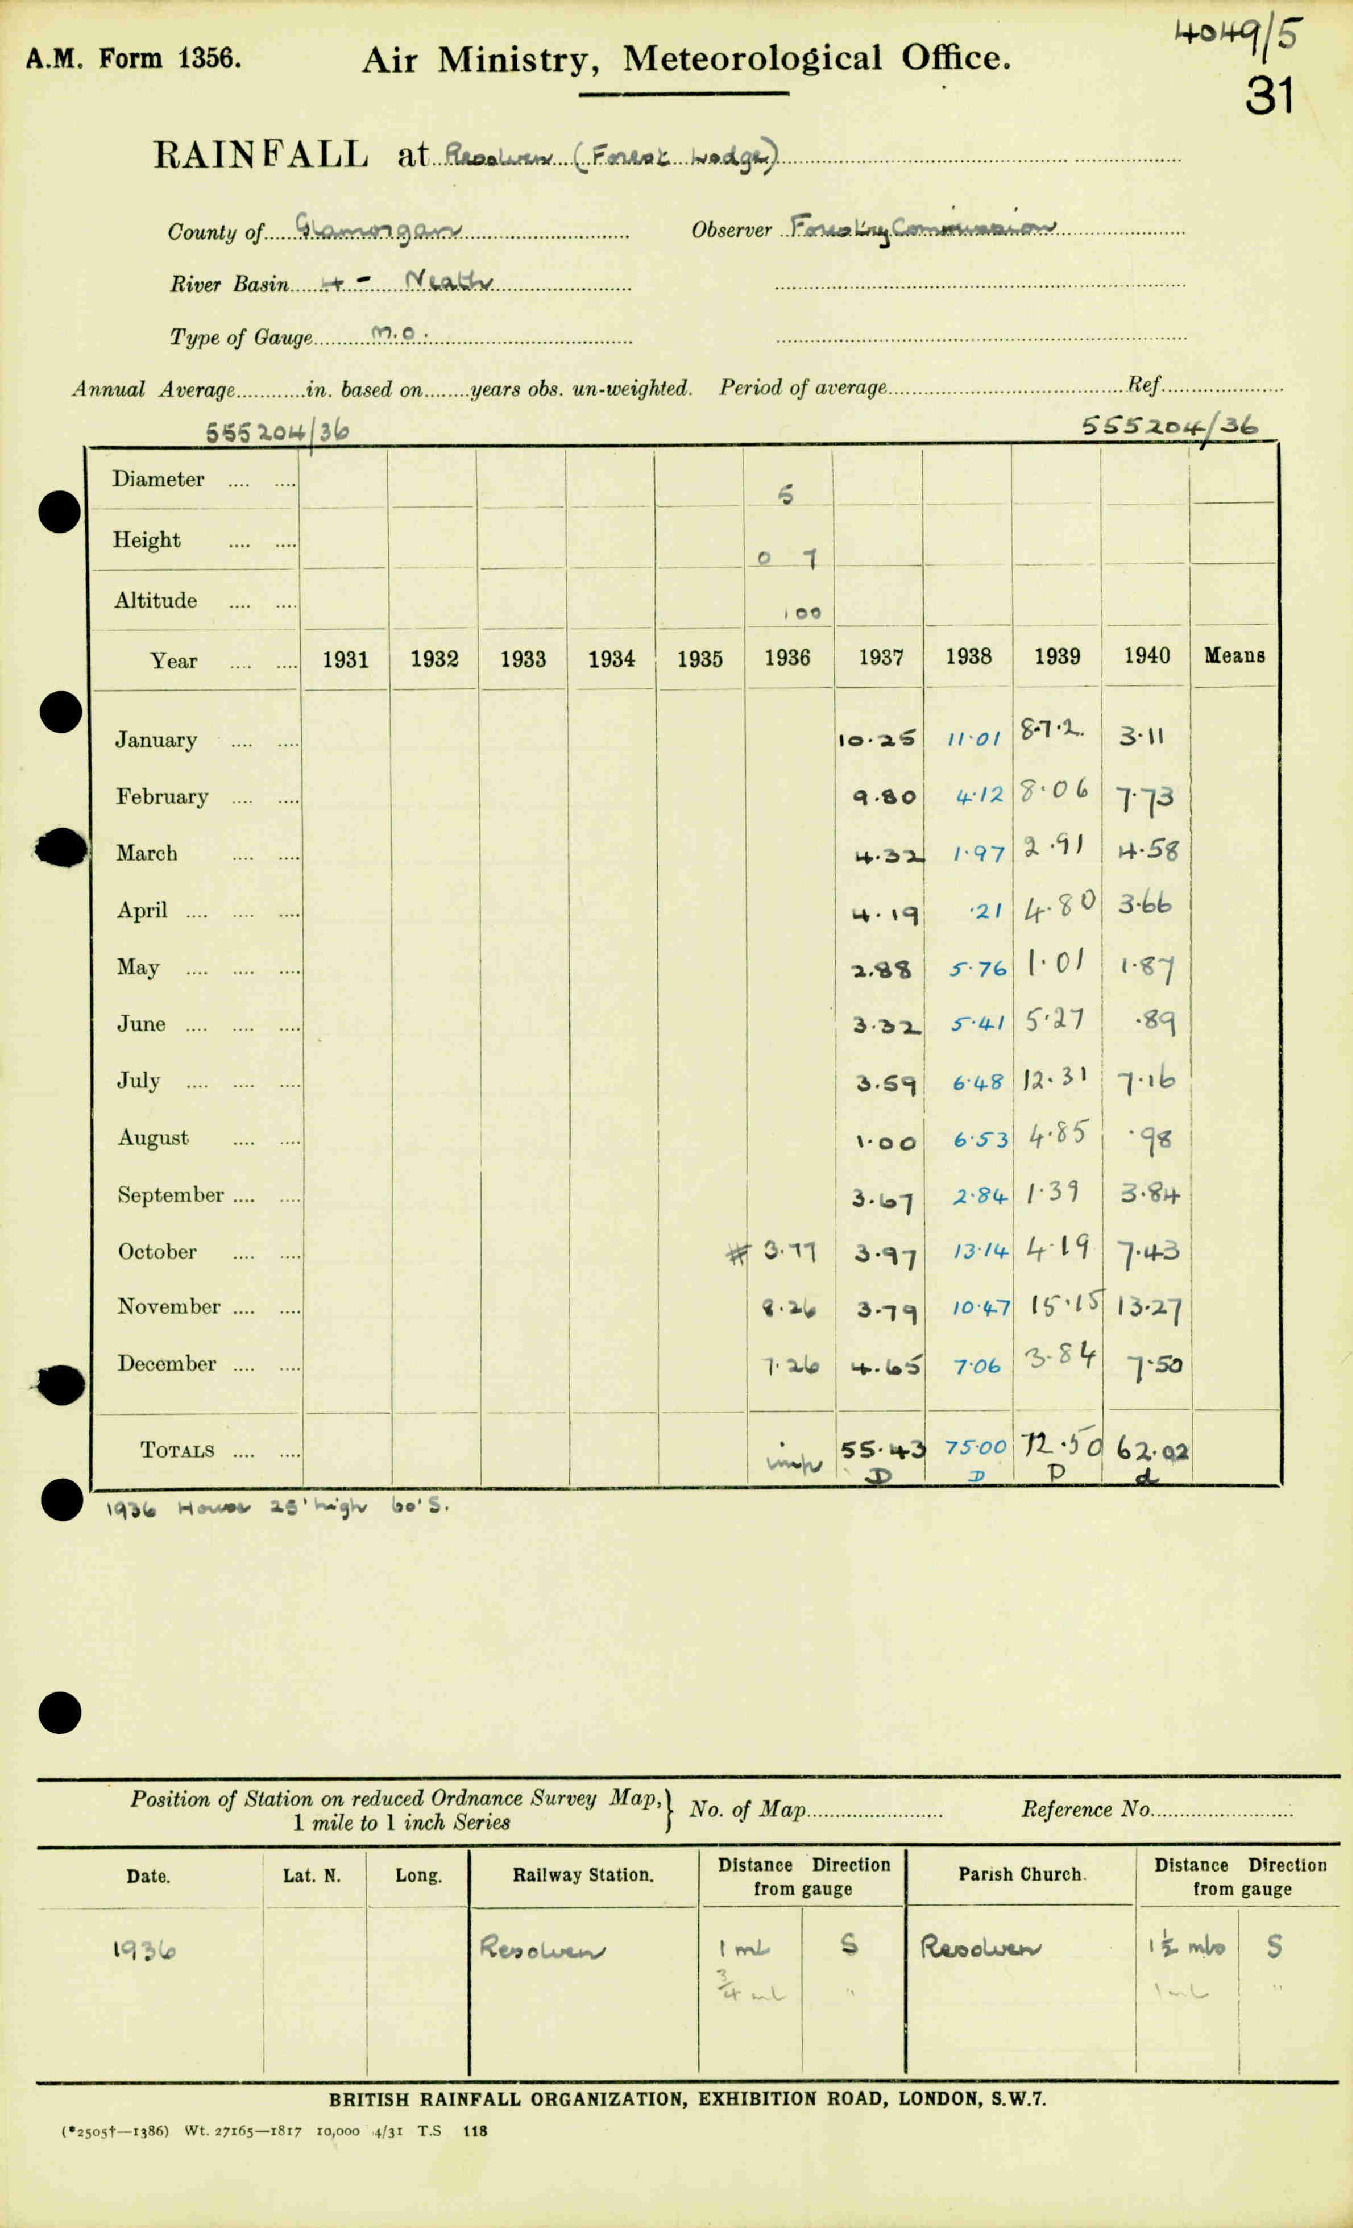 4049/5
A.M. Form 1356. Air Ministry, Meteorological Office.
31
RAINFALL at Resolven (Forest Lodge)
County of Glamorgan Observer Forestry Commission
River Basin 4 - Neath
Type of Gauge M.O.
Annual Average in. based on years obs. un-weighted. Period of average Ref.
555204/36 555204/36
Diameter 5
Height 0 7
Altitude 100
Year 1931 1932 1933 1934 1935 1936 1937 1938 1939 1940 Means
January 10.25 11.01 8.72 3.11
February 9.80 4.12 8.06 7.73
March 4.32 1.97 2.91 4.58
April 4.19 .21 4.80 3.66
May 2.88 5.76 1.01 1.87
June 3.32 5.41 5.27 .89
July 3.59 6.48 12.31 7.16
August 1.00 6.53 4.85 .98
September 3.67 2.84 1.39 3.84
October # 3.77 3.97 13.14 4.19 7.43
November 8.26 3.79 10.47 15.15 13.27
December 7.26 4.65 7.06 3.84 7.50
TOTALS imp 55.43 75.00 72.50 62.02
D D D d
1936 House 25' high 60' S.
Position of Station on reduced Ordnance Survey Map, } No. of Map Reference No.
1 mile to 1 inch Series
Date. Lat. N. Long. Railway Station. Distance Direction from gauge Parish Church. Distance Direction from gauge
1936 Resolven 1 ml S Resolven 1½ mls S
¾ ml " 1 ml "
BRITISH RAINFALL ORGANIZATION, EXHIBITION ROAD, LONDON, S.W.7.
(*2505†—1386) Wt. 27165—1817 10,000 4/31 T.S 118